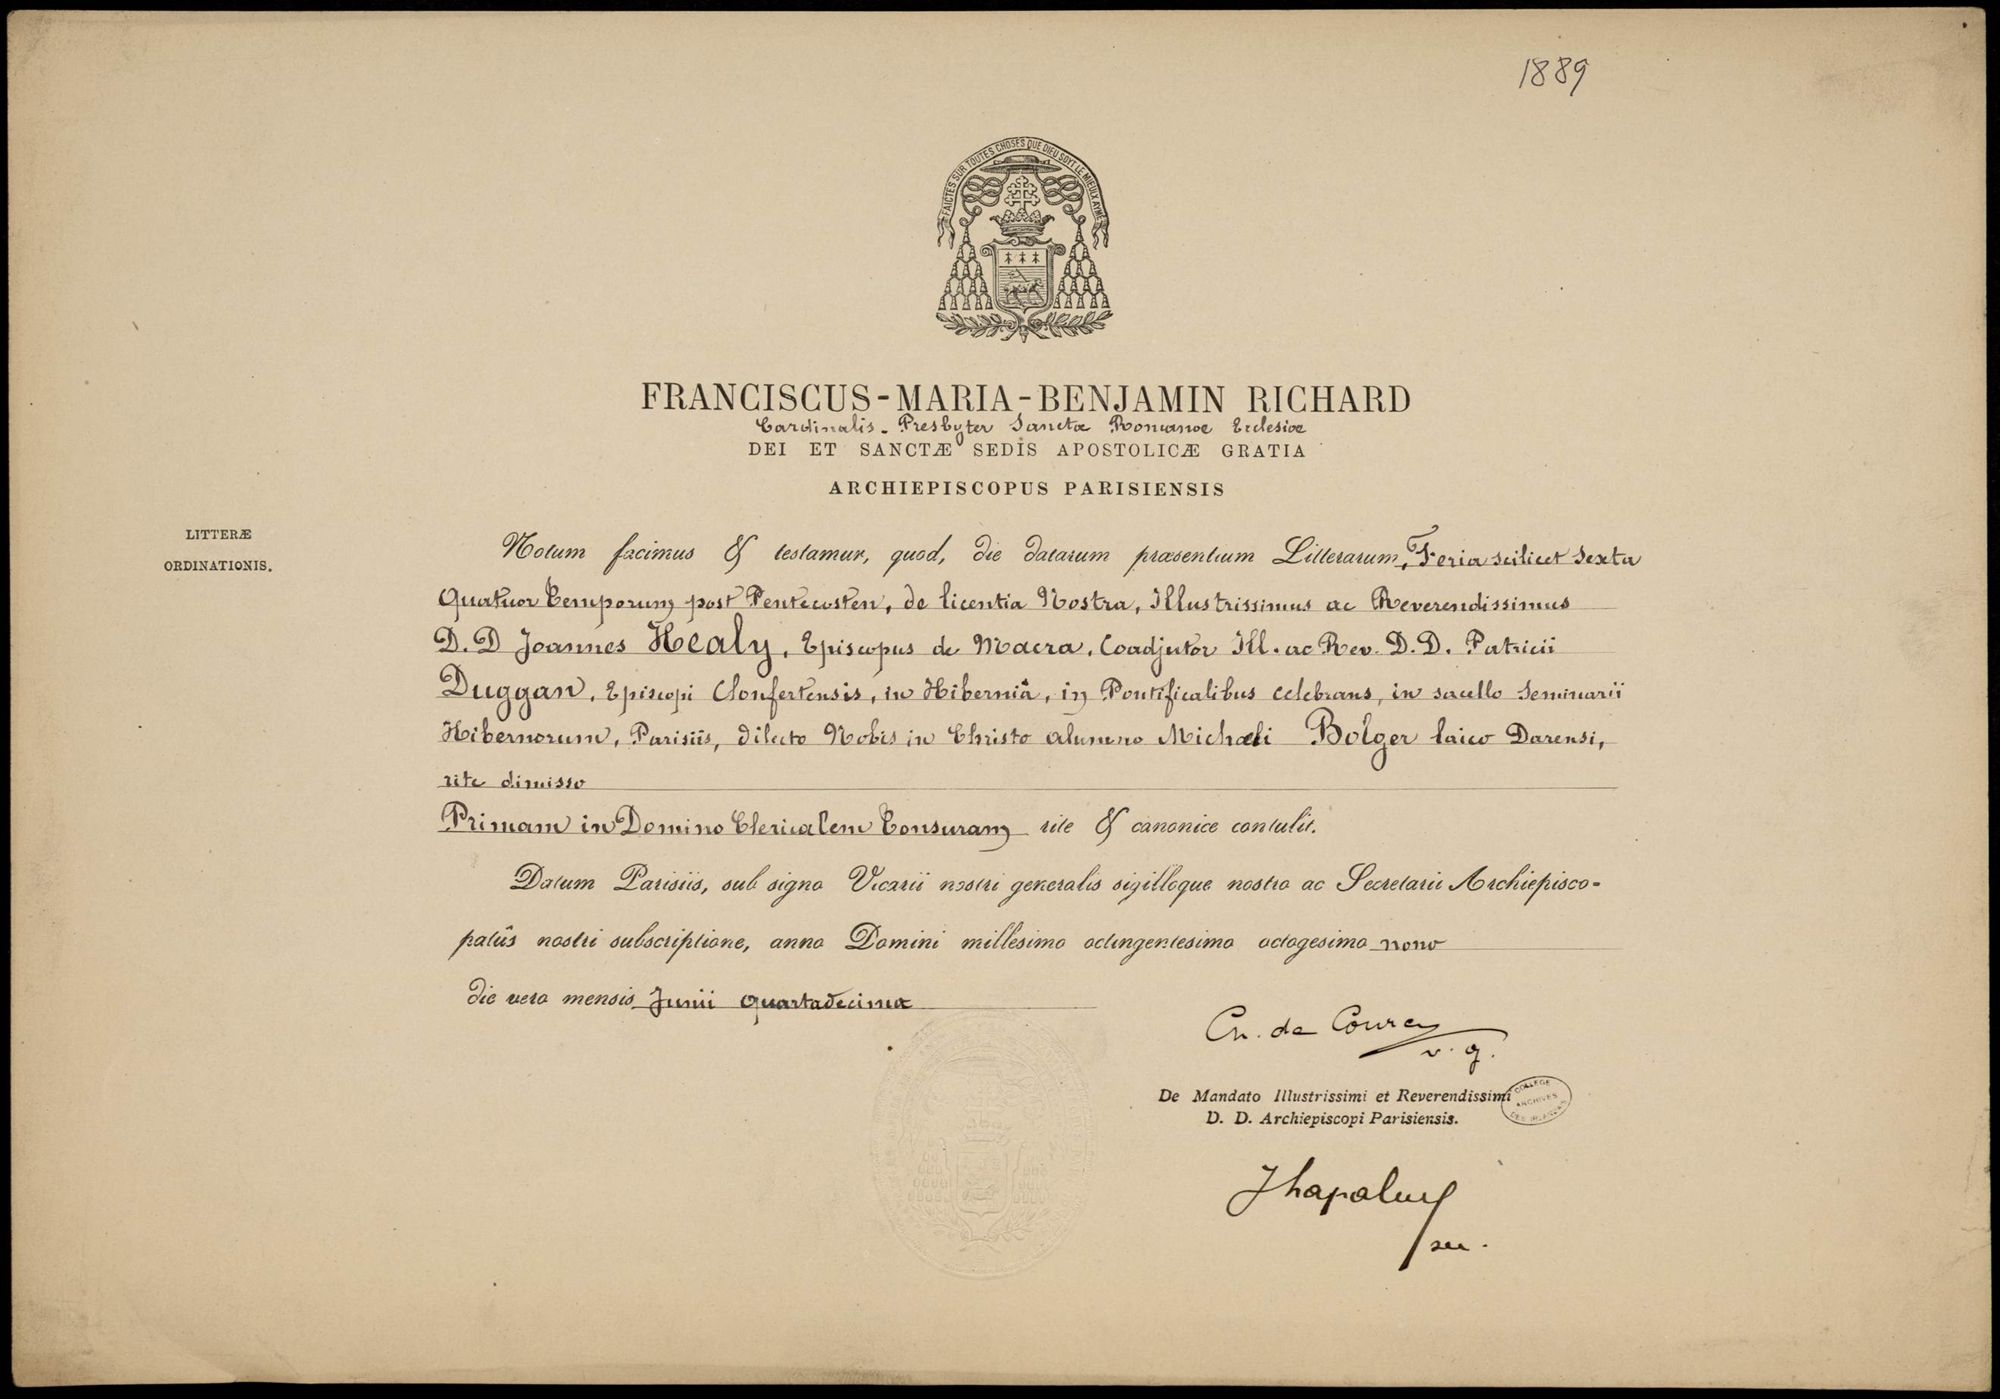 1889
FAICTES SUR TOUTES CHOSES QUE DIEU SOYT LE MIEULX AYMÉ
FRANCISCUS-MARIA-BENJAMIN RICHARD
Cardinalis-Presbyter Sanctæ Romanæ Ecclesiæ
DEI ET SANCTÆ SEDIS APOSTOLICÆ GRATIA
ARCHIEPISCOPUS PARISIENSIS
LITTERÆ
ORDINATIONIS.
Notum facimus & testamur, quod, die datarum præsentium Litterarum, Feria scilicet sexta
Quatuor Temporum post Pentecosten, de licentia Nostra, Illustrissimus ac Reverendissimus
D. D Joannes Healy, Episcopus de Macra, Coadjutor Ill. ac Rev. D. D. Patricii
Duggan, Episcopi Clonfertensis, in Hiberniâ, in Pontificalibus celebrans, in sacello Seminarii
Hibernorum, Parisiis, dilecto Nobis in Christo alumno Michæli Bolger laico Darensi,
rite dimisso
Primam in Domino Clericalem Tonsuram rite & canonice contulit.
Datum Parisiis, sub signo Vicarii nostri generalis sigilloque nostro ac Secretarii Archiepisco-
patûs nostri subscriptione, anno Domini millesimo octingentesimo octogesimo nono
die vero mensis Junii quartadecima
Ch. de Courcy
v. g.
De Mandato Illustrissimi et Reverendissimi
D. D. Archiepiscopi Parisiensis.
COLLEGE
ARCHIVES
DES IRLANDAIS
sec.